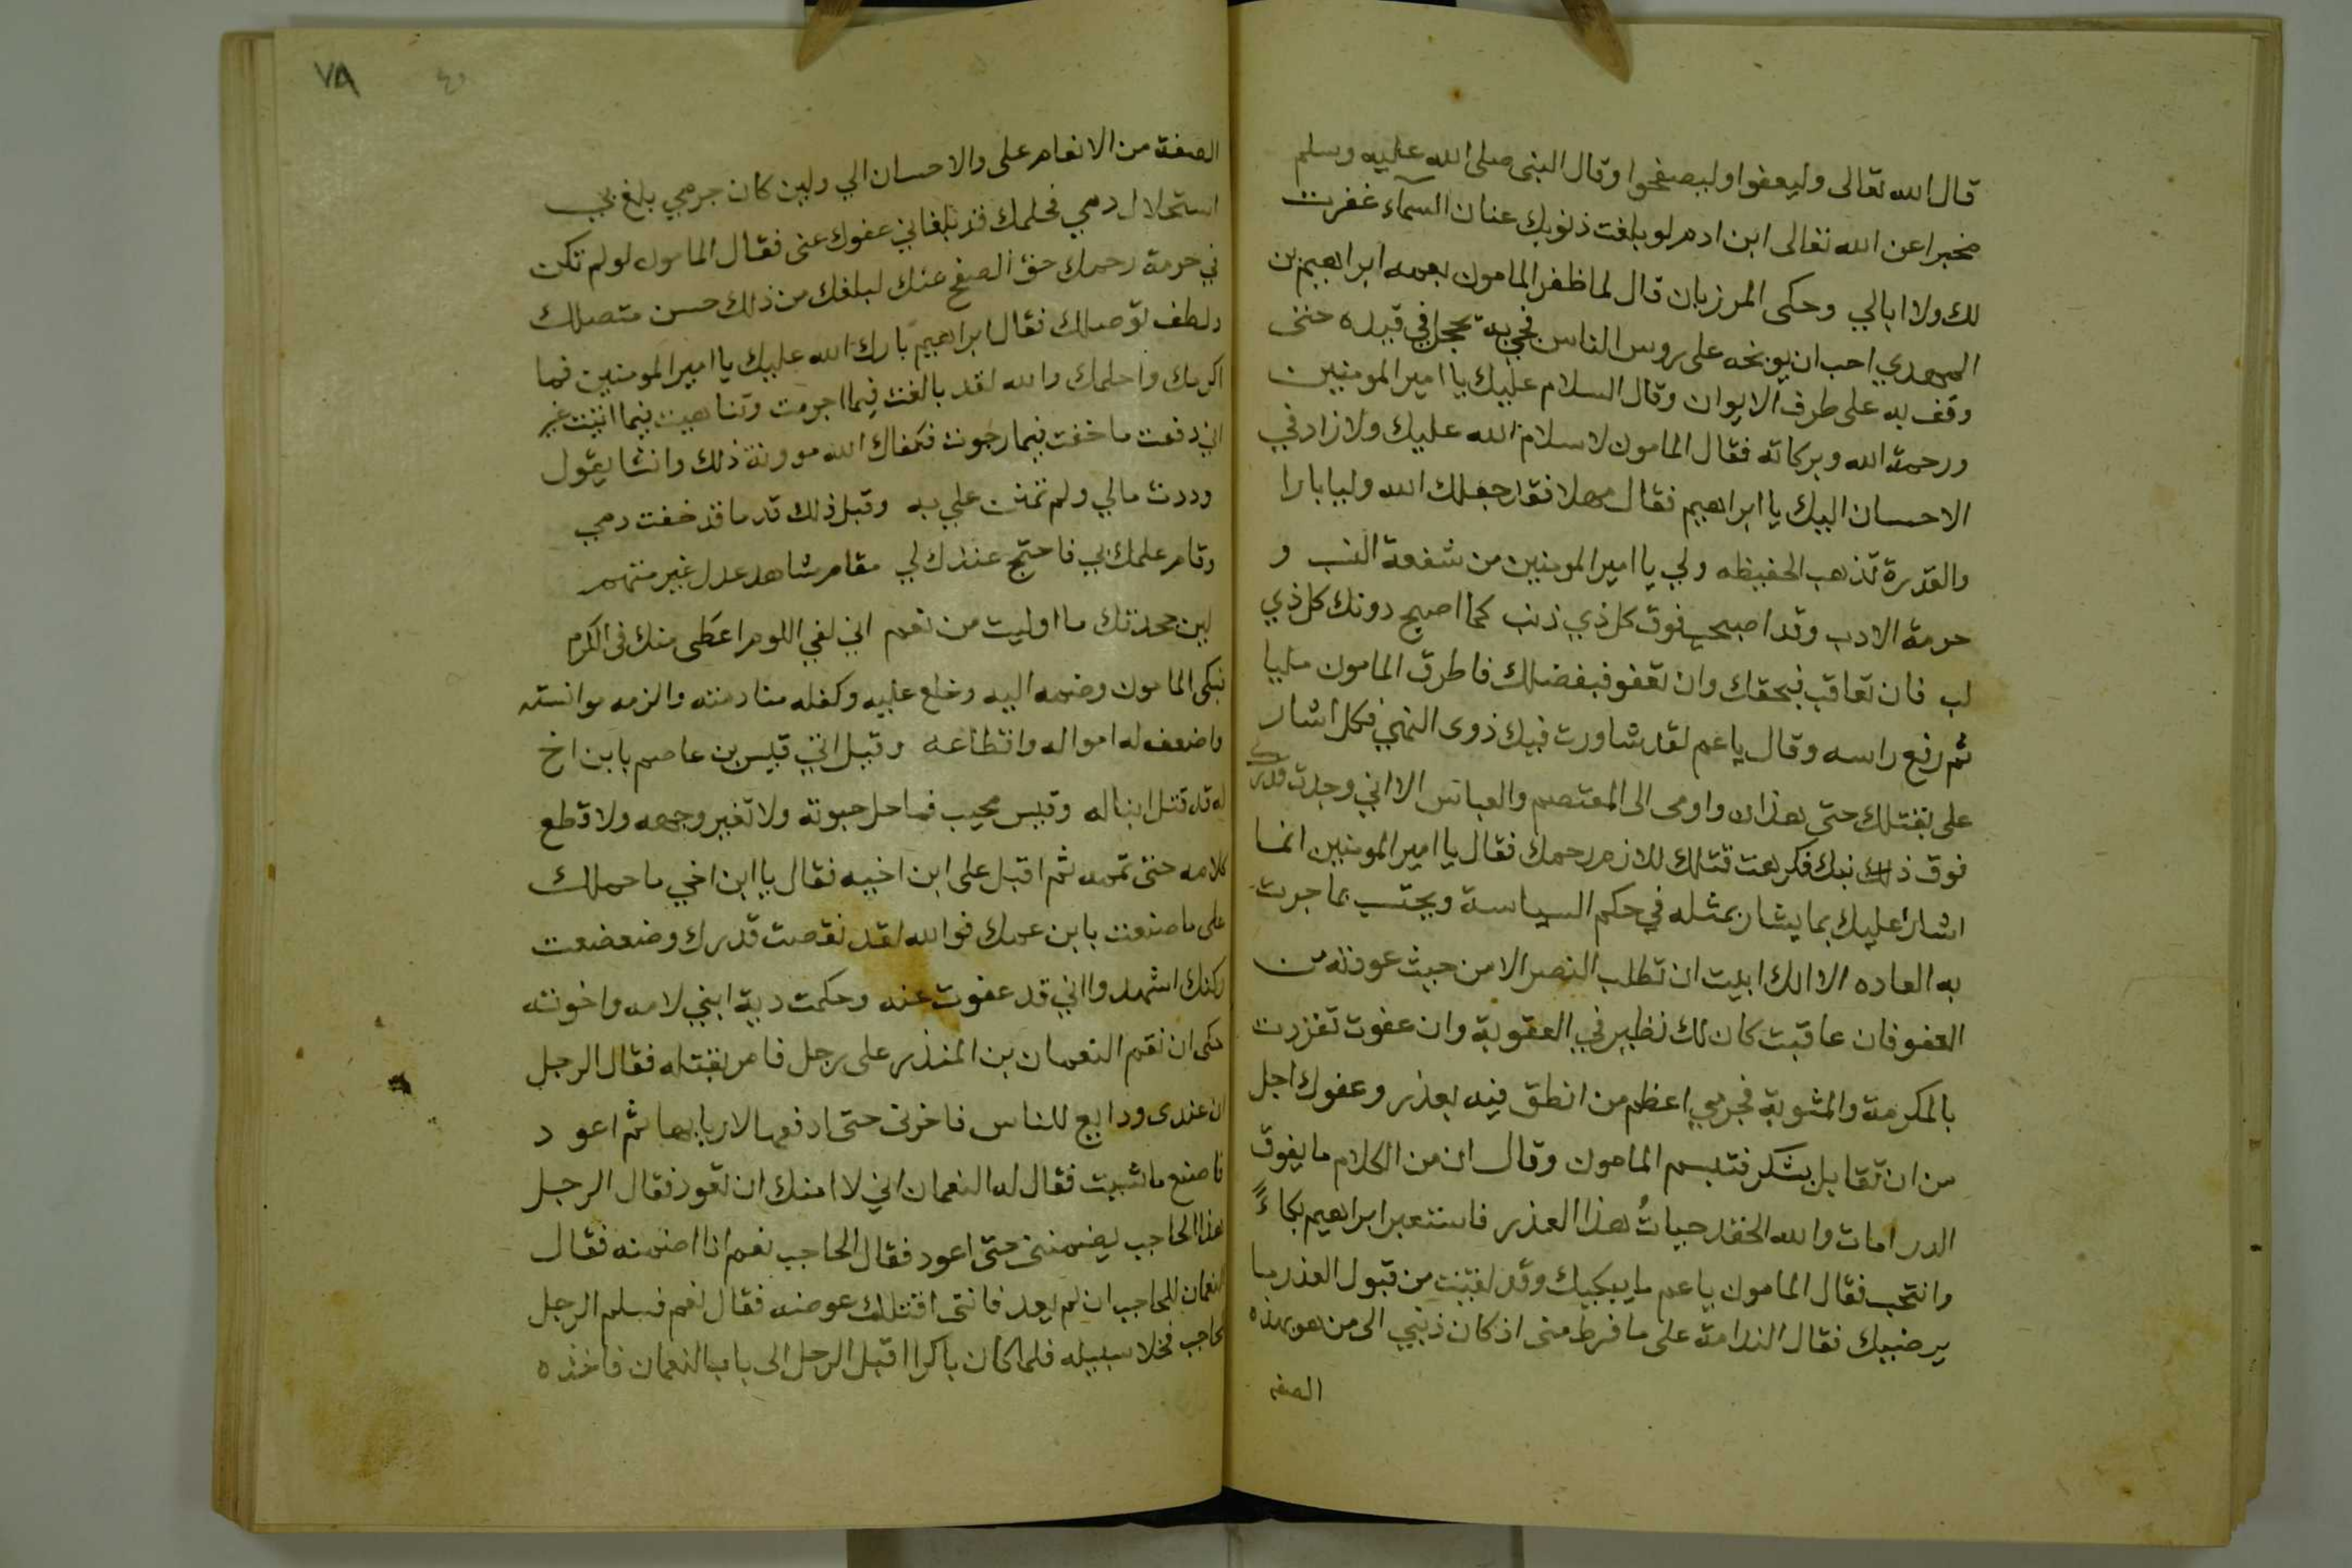 قال الله تعالى وليعفوا وليصفحوا وقال النبي صلى الله عليه وسلم
مخبرا عن الله تعالى ابن ادم لو بلغت ذنوبك عنان السمآء غفرت
لك ولا ابالي وحكى المرزبان قال لما ظفر المامون بعمه ابراهيم بن
المهدي احب ان يوبخه على روس الناس فجي به يحجل في قيده حتى
وقف به على طرف الايوان وقال السلام عليك يا امير المومنين
ورحمة الله وبركاته فقال المامون لا سلام الله عليك ولا زاد في
الاحسان اليك يا ابراهيم فقال مهلا فقد جعلك الله وليا بارا
والقدرة تذهب الحفيظه ولي يا امير المومنين من شفعة النسب و
حرمة الادب وقد اصبحت فوق كل ذي ذنب كما اصبح دونك كل ذي
لب فان تعاقب فبحقك وان تعفو فبفضلك فاطرق المامون مليا
ثم رفع راسه وقال يا عم لقد شاورت فيك ذوى النهي فكل اشار
على بقتلك حتي هذان واومى الى المعتصم والعباس الا اني وجدت قدرك
فوق ذلك فكرهت قتلك للازم رحمك فقال يا امير المومنين انما
اشار عليك بما يشار بمثله في حكم السياسة ويحتسب بما جرت
به العاده الا انك ابيت ان تطلب النصر الا من حيث عودته من
العفو فان عاقبت كان لك نظير في العقوبة وان عفوت تفردت
بالمكرمة والمثوبة فجرمي اعظم من انطق فيه بعذر وعفوك اجل
من ان تقابل بشكر فتبسم المامون وقال ان من الكلام ما يفوق
الدر امات والله الحقد حياتُ هذا العذر فاستعبر ابراهيم بكاءً
وانتحب فقال المامون يا عم ما يبكيك وقد لقيت من قبول العذر ما
يرضيك فقال الندامة على ما فرط منى اذ كان ذنبي الى من هو بهذه
الصفه
٧٨
الصفة من الانعام على والاحسان الي ولين كان جرمي بلغ بي
استحلال دمي فحلمك قد بلغاني عفوك عنى فقال المامون لو لم تكن
في حرمة رحمك حق الصفح عنك لبلغك من ذلك حسن متصلك
ولطف توصلك فقال ابراهيم بارك الله عليك يا امير المومنين فما
اكرمك واحلمك والله لقد بالغت فيما اجرمت وتناهيت فيما اتيت غير
اني دفعت ما خفت فيما رجوت فكفاك الله موونة ذلك وانشا يقول
ورددت مالي ولم تمنن علي به وقبل ذلك قد ما قد خفت دمي
وقام علمك بي فاحتج عندك لي مقام شاهد عدل غير متهم
لين جحدتك ما اوليت من نعم اني لفي اللوم اعطى منك فى الكرم
فبكى المامون وضمه اليه وخلع عليه وكفله منادمته والزمه موانسته
واضعف له امواله واقطاعه وقيل اتي قيس بن عاصم بابن اخ
له قد قتل ابنا له وقيس محيب فما حل حبوته ولا تغير وجهه ولا قطع
كلامه حتى تممه ثم اقبل على ابن اخيه فقال يا ابن اخي ما حملك
على ما صنعت بابن عمك فوالله لقد نقصت قدرك وضعضعت
ركنك اشهدوا اني قد عفوت عنه وحكمت دية ابني لامه واخوته
حكى ان نقم النعمان بن المنذر على رجل فامر بقتله فقال الرجل
ان عندى ودايع للناس فاخرنى حتى ادفعها لاربابها ثم اعود
فاصنع ما شيت فقال له النعمان اني لا امنك ان تعود فقال الرجل
هذا الحاجب يضمنى حتى اعود فقال الحاجب نعم انا اضمنه فقال
النعمان للحاجب ان لم يعد فانتى اقتلك عوضه فقال نعم فسلم الرجل
لحاجب فخلا سبيله فلما كان باكرا اقبل الرجل الى باب النعمان فاخذه